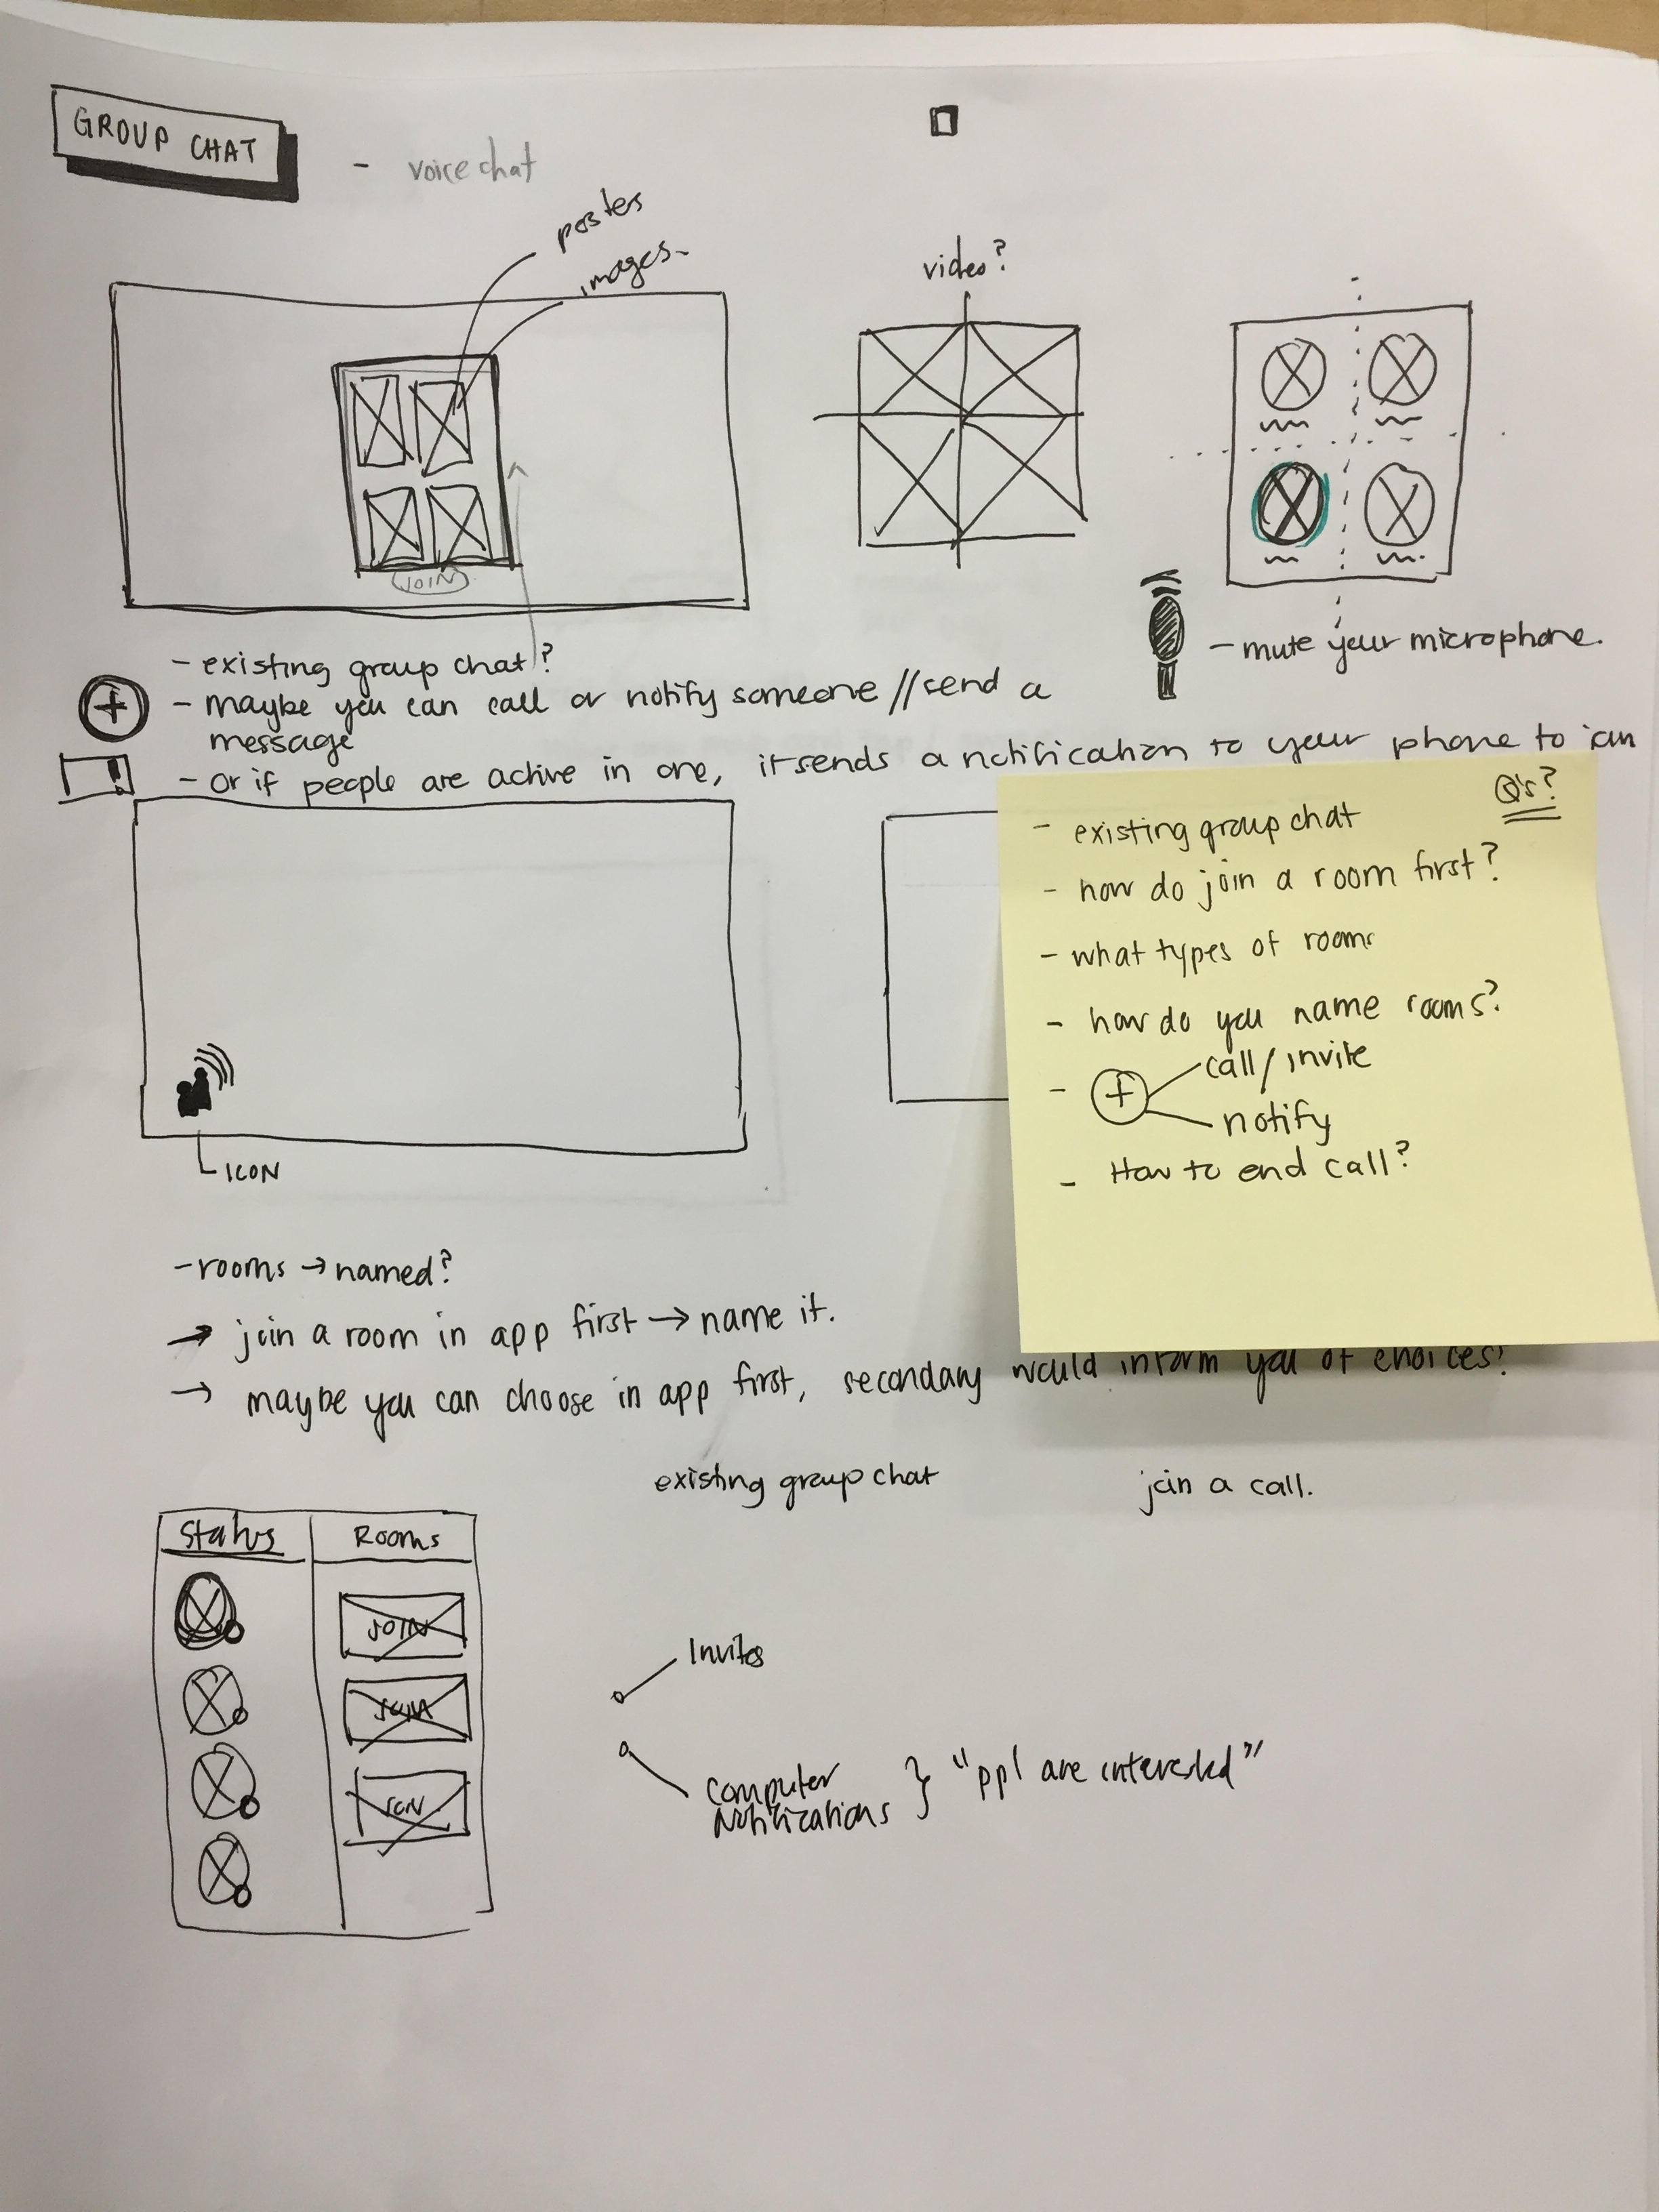 GROUP CHAT
- voice chat
posters
images-
video?
JOIN
- mute your microphone.
- existing group chat?
- maybe you can call or notify someone // send a
message
- or if people are active in one, it sends a notification to your phone to join
Q's?
- existing group chat
- how do join a room first?
- what types of rooms
- how do you name rooms?
- + call / invite
notify
- How to end call?
ICON
- rooms → named?
→ join a room in app first → name it.
→ maybe you can choose in app first, secondary would inform you of choices!
existing group chat
join a call.
Status
Rooms
JOIN
JOIN
JOIN
Invites
Computer
Notifications } "ppl are interested"